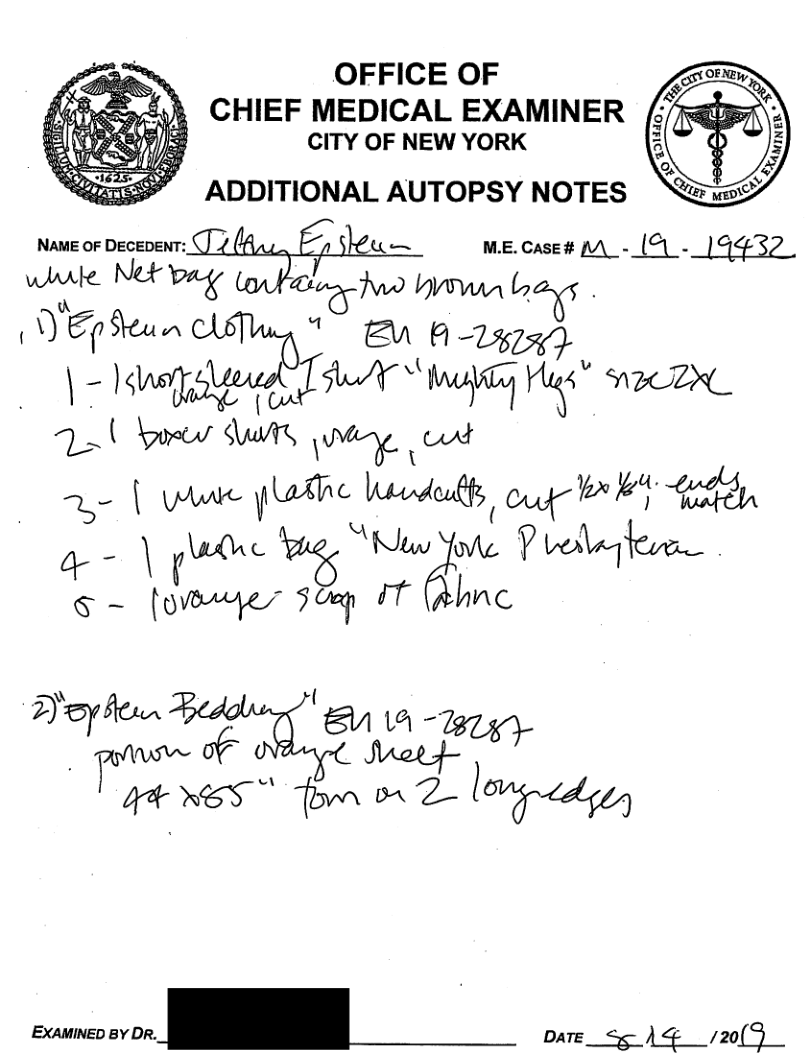 OFFICE OF
CHIEF MEDICAL EXAMINER
CITY OF NEW YORK
ADDITIONAL AUTOPSY NOTES
SIGILLUM CIVITATIS NOVI EBORACI
1625
THE CITY OF NEW YORK
OFFICE OF CHIEF MEDICAL EXAMINER
NAME OF DECEDENT: Jeffrey Epstein M.E. CASE # M - 19 - 19432
white Net bag containing two brown bags.
1) "Epstein clothing" EU 19-28287
1 - 1 short sleeved T shirt "Mighty Hegs" size 2XL
orange, cut
2. 1 boxer shorts, orange, cut
3 - 1 white plastic handcuffs, cut 1/2 x 1/64". ends
match
4 - 1 plastic bag "New York Presbyterian.
5 - 1 orange scrap of fabric
2) "Epstein Bedding" EU 19-28287
portion of orange sheet
44 x 85" torn on 2 long edges
EXAMINED BY DR.
DATE 8 14 / 2019